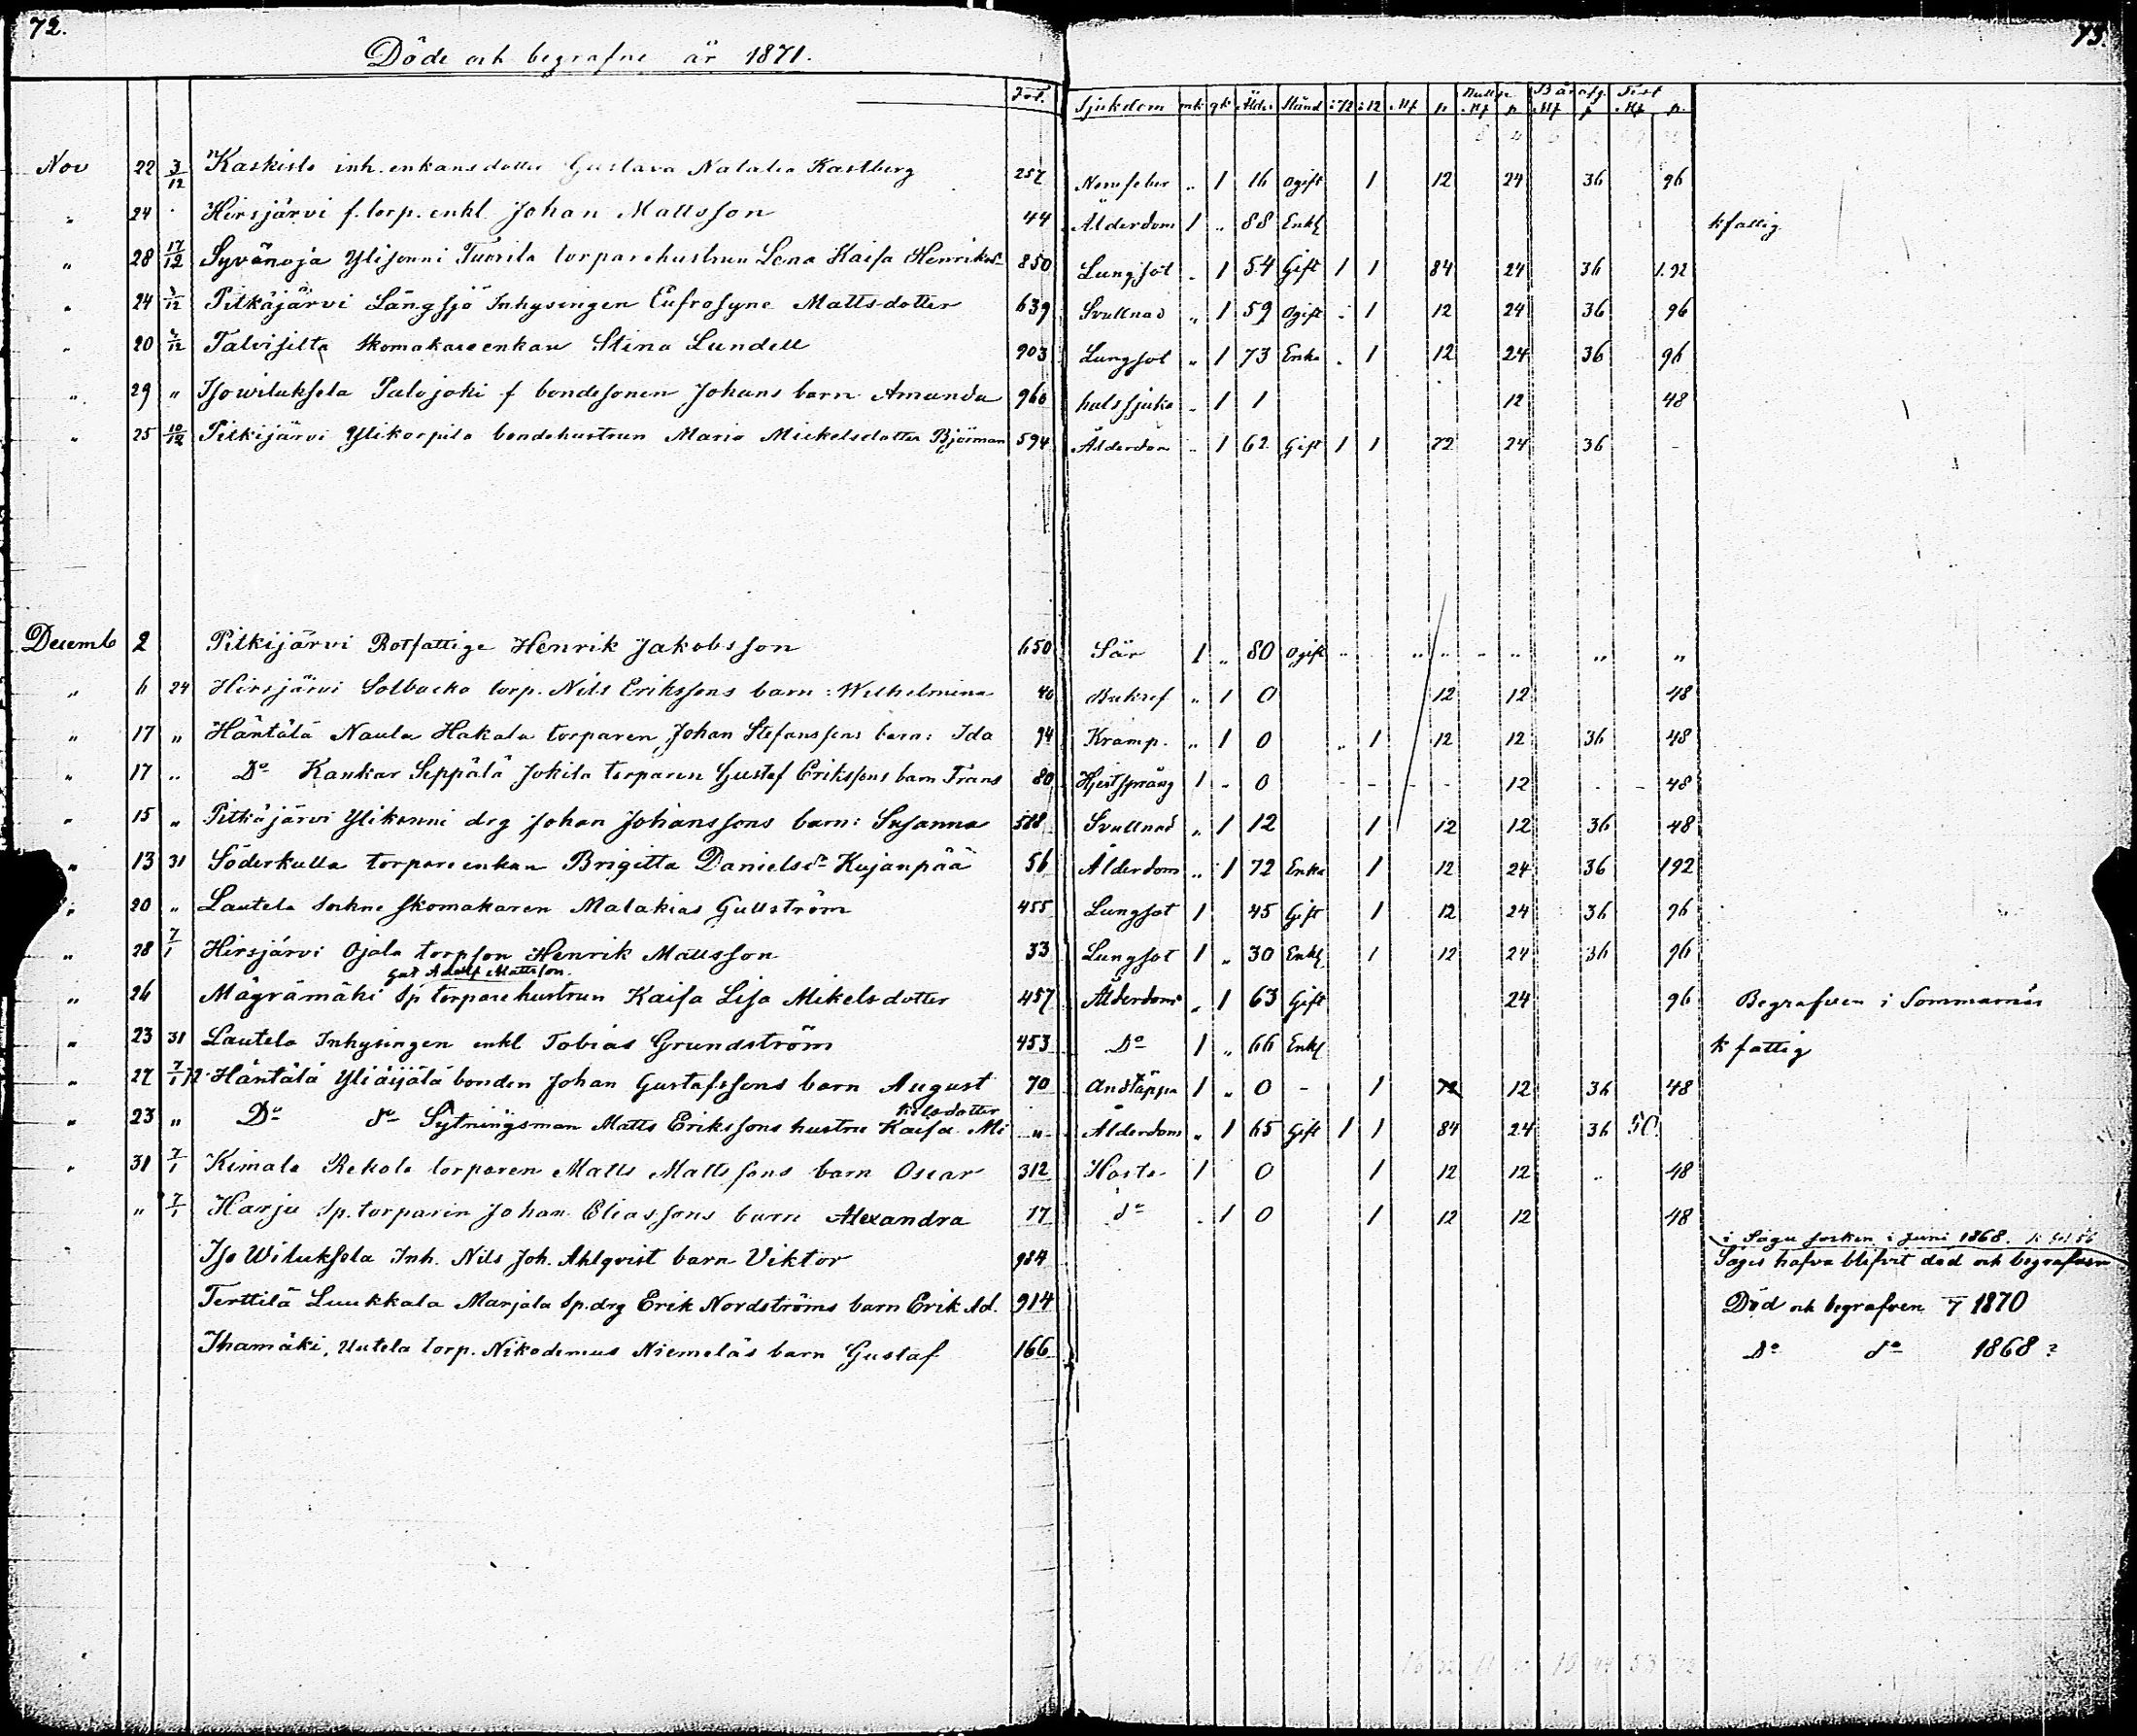 72.
73.
Döde och begrafne år 1871.
Fol. Sjukdom mk qk Ålder Stånd :72 :12 Mk p Mk p Mk p Mk p
Nov 22 3/12 Kaskisto inh. enkans dotter Gustava Natalia Kastberg 257 Nervfeber " 1 16 ogift 1 12 24 36 96
" 24 Hirsjärvi f. torp. enkl Johan Mattsson 44 Ålderdom 1 " 88 Enkl kfattig
" 28 17/12 Syvänoja Ylisonni Tuorila torparehustrun Lena Kaisa Henriksdr 850 Lungsot " 1 54 Gift 1 1 84 24 36 1.92
" 24 /12 Pitkäjärvi Långsjö Inhysingen Eufrosyne Mattsdotter 639 Svullnad " 1 59 Ogift " 1 12 24 36 96
" 20 /12 Talvisilta Skomakareenkan Stina Lundell 903 Lungsot " 1 73 Enka " 1 12 24 36 96
" 29 " Isowiluksela Palojoki f bondesonen Johans barn Amanda 960 halssjuka " 1 1 12 48
" 25 10/12 Pitkijärvi Ylikorpila bondehustrun Maria Mickelsdotter Björman 594 Ålderdom " 1 62 Gift 1 1 72 24 36 -
Decemb 2 Pitkijärvi Rotfattige Henrik Jakobsson 650 Sår 1 " 80 ogift " " " " " " "
" 6 24 Hirsjärvi Solbacka torp. Nils Erikssons barn: Wilhelmina 40 Bukref " 1 0 12 12 48
" 17 " Häntälä Naula Hakala torparen Johan Stefanssons barn: Ida 94 Kramp. " 1 0 " 1 12 12 36 48
" 17 " Do Kankar Seppälä Jokila torparen Gustaf Erikssons barn Frans 80 Hjertsprång 1 " 0 - - - - 12 - - 48
" 15 " Pitkäjärvi Ylikonni drg Johan Johanssons barn: Susanna 588 Svullnad " 1 12 1 12 12 36 48
" 13 31 Söderkulla torpareenkan Brigitta Danielsdr Kujanpää 56 Ålderdom " 1 72 Enka 1 12 24 36 192
" 20 " Lautela Sockne skomakaren Malakias Gullström 455 Lungsot 1 45 Gift 1 12 24 36 96
" 28 7/1 Hirsjärvi Ojala torpson Henrik Mattsson 33 Lungsot 1 " 30 Enkl 1 12 24 36 96
Gust Adolf Mattsson
" 26 Mägrämäki Sp torparehustrun Kaisa Lisa Mikelsdotter 457 Ålderdom " 1 63 Gift 24 96 Begrafven i Sommarnäs
" 23 31 Lautela Inhysingen enkl Tobias Grundström 453 Do 1 " 66 Enkl k fattig
" 27 7/1 72 Häntälä Yliäijälä bonden Johan Gustafssons barn August 70 Andtäppa 1 " 0 - 1 72 12 36 48
kelsdotter
" 23 " Do do Sytningsman Matts Erikssons hustru Kaisa Mi " Ålderdom " 1 65 Gift 1 1 84 24 36 50
" 31 7/1 Kimala Rekola torparen Matts Mattssons barn Oscar 312 Hosta 1 0 1 12 12 " 48
" 7/1 Harju Sp. torparen Johan Eliassons barn Alexandra 17 do " 1 0 1 12 12 48
i Sagu socken i Juni 1868.
Iso Wiluksela Inh. Nils Joh. Ahlqvist barn Viktor 984 Säges hafva blifvit död och begrafven
Terttilä Luukkala Marjala Sp. drg Erik Nordströms barn Erik Ad. 914 Död och begrafven 7 1870
Ihamäki, Uutela torp. Nikodemus Niemeläs barn Gustaf 166 Do do 1868 ?